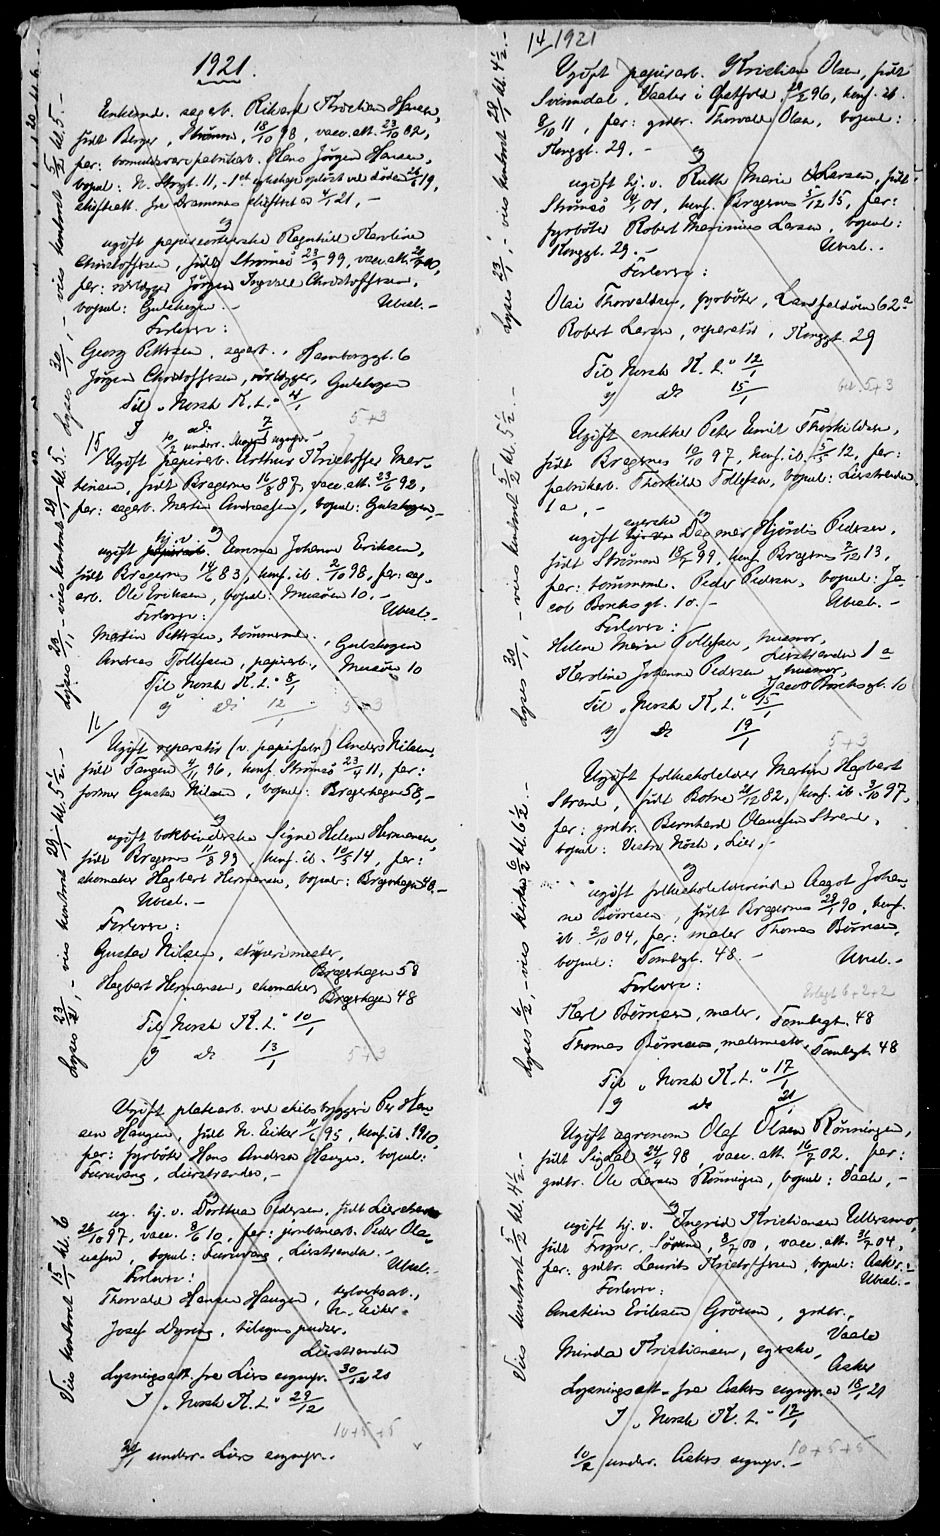 1921.
Enkemd. sagarb. Rikard Kristian Hansen,
født Berger, Strømm, 18/10 98, vacc.att. 23/10 02,
far: bomuldsvarefabrikarb. Hans Jørgen Hansen,
bopæl: N. Storgt. 11, - 1ste egteskap opløst ved døden 19,
skifteatt. fra Drammens skifteret 4/1 21, -
og
ugift papirsorterske Ragnhild Karoline
Christoffersen, født Strømsø 23/9 99, vacc.att.
far: rørlegger Jørgen Ingvald Christoffersen,
bopæl: Gulskogen. - Ubesl. -
Forlovere:
Georg Pettersen, sagarb., Hamborggt. 6
Jørgen Christoffersen, rørlegger, Gulskogen
Til "Norsk K. L." 4/1
og do 7/1
5+3
Lyses 30/1, - vies kontoret 5/2 kl. 5. -
15/
10/2 underr. sognepr. -
Ugift papirarb. Arthur Kristoffer Mar-
tinsen, født Bragernes 16/8 87, vacc.att. 23/6 92,
far: sagarb. Martin Andreassen, bopæl: Gulskogen, -
og
hj. v.
ugift papirarb. Emma Johanne Eriksen,
født Bragernes 14/6 83, konf. ib. 2/10 98, far: sag-
arb. Ole Eriksen, bopæl: Museøen 10. -
Ubesl. -
Forlovere:
Martin Pettersen, tømmermd., Gulskogen
Andreas Tollefsen, papirarb., Museøen 10
Til Norsk K. L." 8/1
og do 12/1
5+3
Lyses 23/1, - vies kontoret 29/1 kl. 5. -
16/
Ugift reparatør (v. papirfabr.) Anders Nilsen,
født Tangen 4/11 96, konf. Strømsø 23/4 11, far:
former Gustav Nilsen, bopæl: Bragerhagen 58, -
og
ugift bokbinderske Signe Helene Hermansen,
født Bragernes 11/8 99, konf. ib. 10/5 14, far:
skomaker Hagbart Hermansen, bopæl: Bragerhagen 48, -
Ubesl. -
Forlovere:
Gustav Nilsen, støperimester,
Bragerhagen 58
Hagbart Hermansen, skomaker,
Bragerhagen 48
Til Norsk K. L." 10/1
og do 13/1
5+3
Lyses 23/1, - vies kontoret 29/1 kl. 5½. -
Ugift platearb. ved skibsbyggeri Per Han-
sen Haugen, født N. Eiker 11/6 95, konf. ib. 1910,
far: fyrbøter Hans Andersen Haugen, bopæl:
Furuvang, Lierstranden, -
og
ug. hj. v. Dorthea Pedersen, født Lierstranden
26/10 97, vacc. 3/6 10, far: jernbanearb. Peder Ola-
ussen, bopæl: Furuvang, Lierstranden. -
Ubesl. -
Forlovere:
Thorvald Hansen Haugen,
N. Eiker.
Josef Dyring, vitsgns pudser,
Lierstranden
Lysningsatt. fra Liers sognepr. 30/12 20
I "Norsk K. L." 29/12
10+5+5
underr. Liers sognepr. -
Vies kontoret 15/1 kl. 6
14/1921
Ugift papirarb. Kristian Olsen, født
Svinndal, Vaaler i Østfold, 96, konf. ib.
8/10 11, far: grdbr. Thorvald Olsen, bopæl:
Konggt. 29, -
og
ugift hj. v. Ruth Marie Larsen, født
Strømsø 4/1 01, konf. Bragernes 5/12 15, far:
fyrbøter Robert Maximus Larsen, bopæl:
Konggt. 29. - Ubesl. -
Forlovere:
Olai Thorvaldsen, fyrbøter, Landfaldøen 62 a
Robert Larsen, reparatør, Konggt. 29
Til Norsk K. L." 12/1
og do 15/1
bet. 5+3
Lyses 23/1, - vies kontoret 29/1 kl. 4½. -
Ugift snekker Peter Emil Thorkildsen,
født Bragernes 10/10 97, konf. ib. 5/5 12, far:
fabrikarb. Thorkild Tollefsen, bopæl: Lierstranden
1 a, -
og
syerske
ugift hj. v. Dagmar Hjørdis Pedersen,
født Strømm 18/7 99, konf. Bragernes 7/12 13,
far: tømmermd. Peder Pedersen, bopæl: Ja-
cob Borchs gt. 10. - Ubesl. -
Forlovere:
Helene Marie Tollefsen, husmor,
Lierstranden 1 a
Karoline Johanne Pedersen, husmor,
Jacob Borchsgt. 10
Til "Norsk K. L." 15/1
og do 19/1
5+3
Lyses 30/1, - vies kontoret 5/2 kl. 5½. -
Ugift folkeskolelærer Martin Hagbart
Strand, født Botne 31/12 82, konf. ib. 3/10 97,
far: grdbr. Bernhard Olaussen Strand,
bopæl: Vestre Nøste, Lier, -
og
ugift folkeskolelærerinde Aagot Johan-
ne Børresen, født Bragernes 29/1 90, konf.
ib. 2/10 04, far: maler Thomas Børresen,
bopæl: Tombgt. 48. - Ubesl. -
Forlovere:
Erlagt 6+2+2
Karl Børresen, maler, Tombgt. 48
Thomas Børresen, malermester, Tombgt. 48
Til "Norsk K. L." 17/1
og do 21/1
Lyses 6/2, - vies kirken 6/2 kl. 6½. -
Ugift agronom Olaf Olsen Rønningen,
født Sigdal 24/4 98, vacc. att. 16/7 02, far:
grdbr. Ole Larsen Rønningen, bopæl: Vaale, -
og
ugift hj. v. Ingrid Kristiansen Ullersmo,
født Frogner, Sørum, 3/7 00, vacc. att. 04,
far: grdbr. Laurits Kristoffersen, bopæl: Asker. -
Ubesl. -
Forlovere:
Anstein Eriksen Grøsum, grdbr.,
Vaale
Minda Kristiansen, syerske,
Asker
Lysningsatt. fra Askers sognepr. ad 18/1 21
I "Norsk K. L." 12/1
10+5+5
10/2 underr. Askers sognepr. -
Vies kontoret 5/2 kl. 4½. -